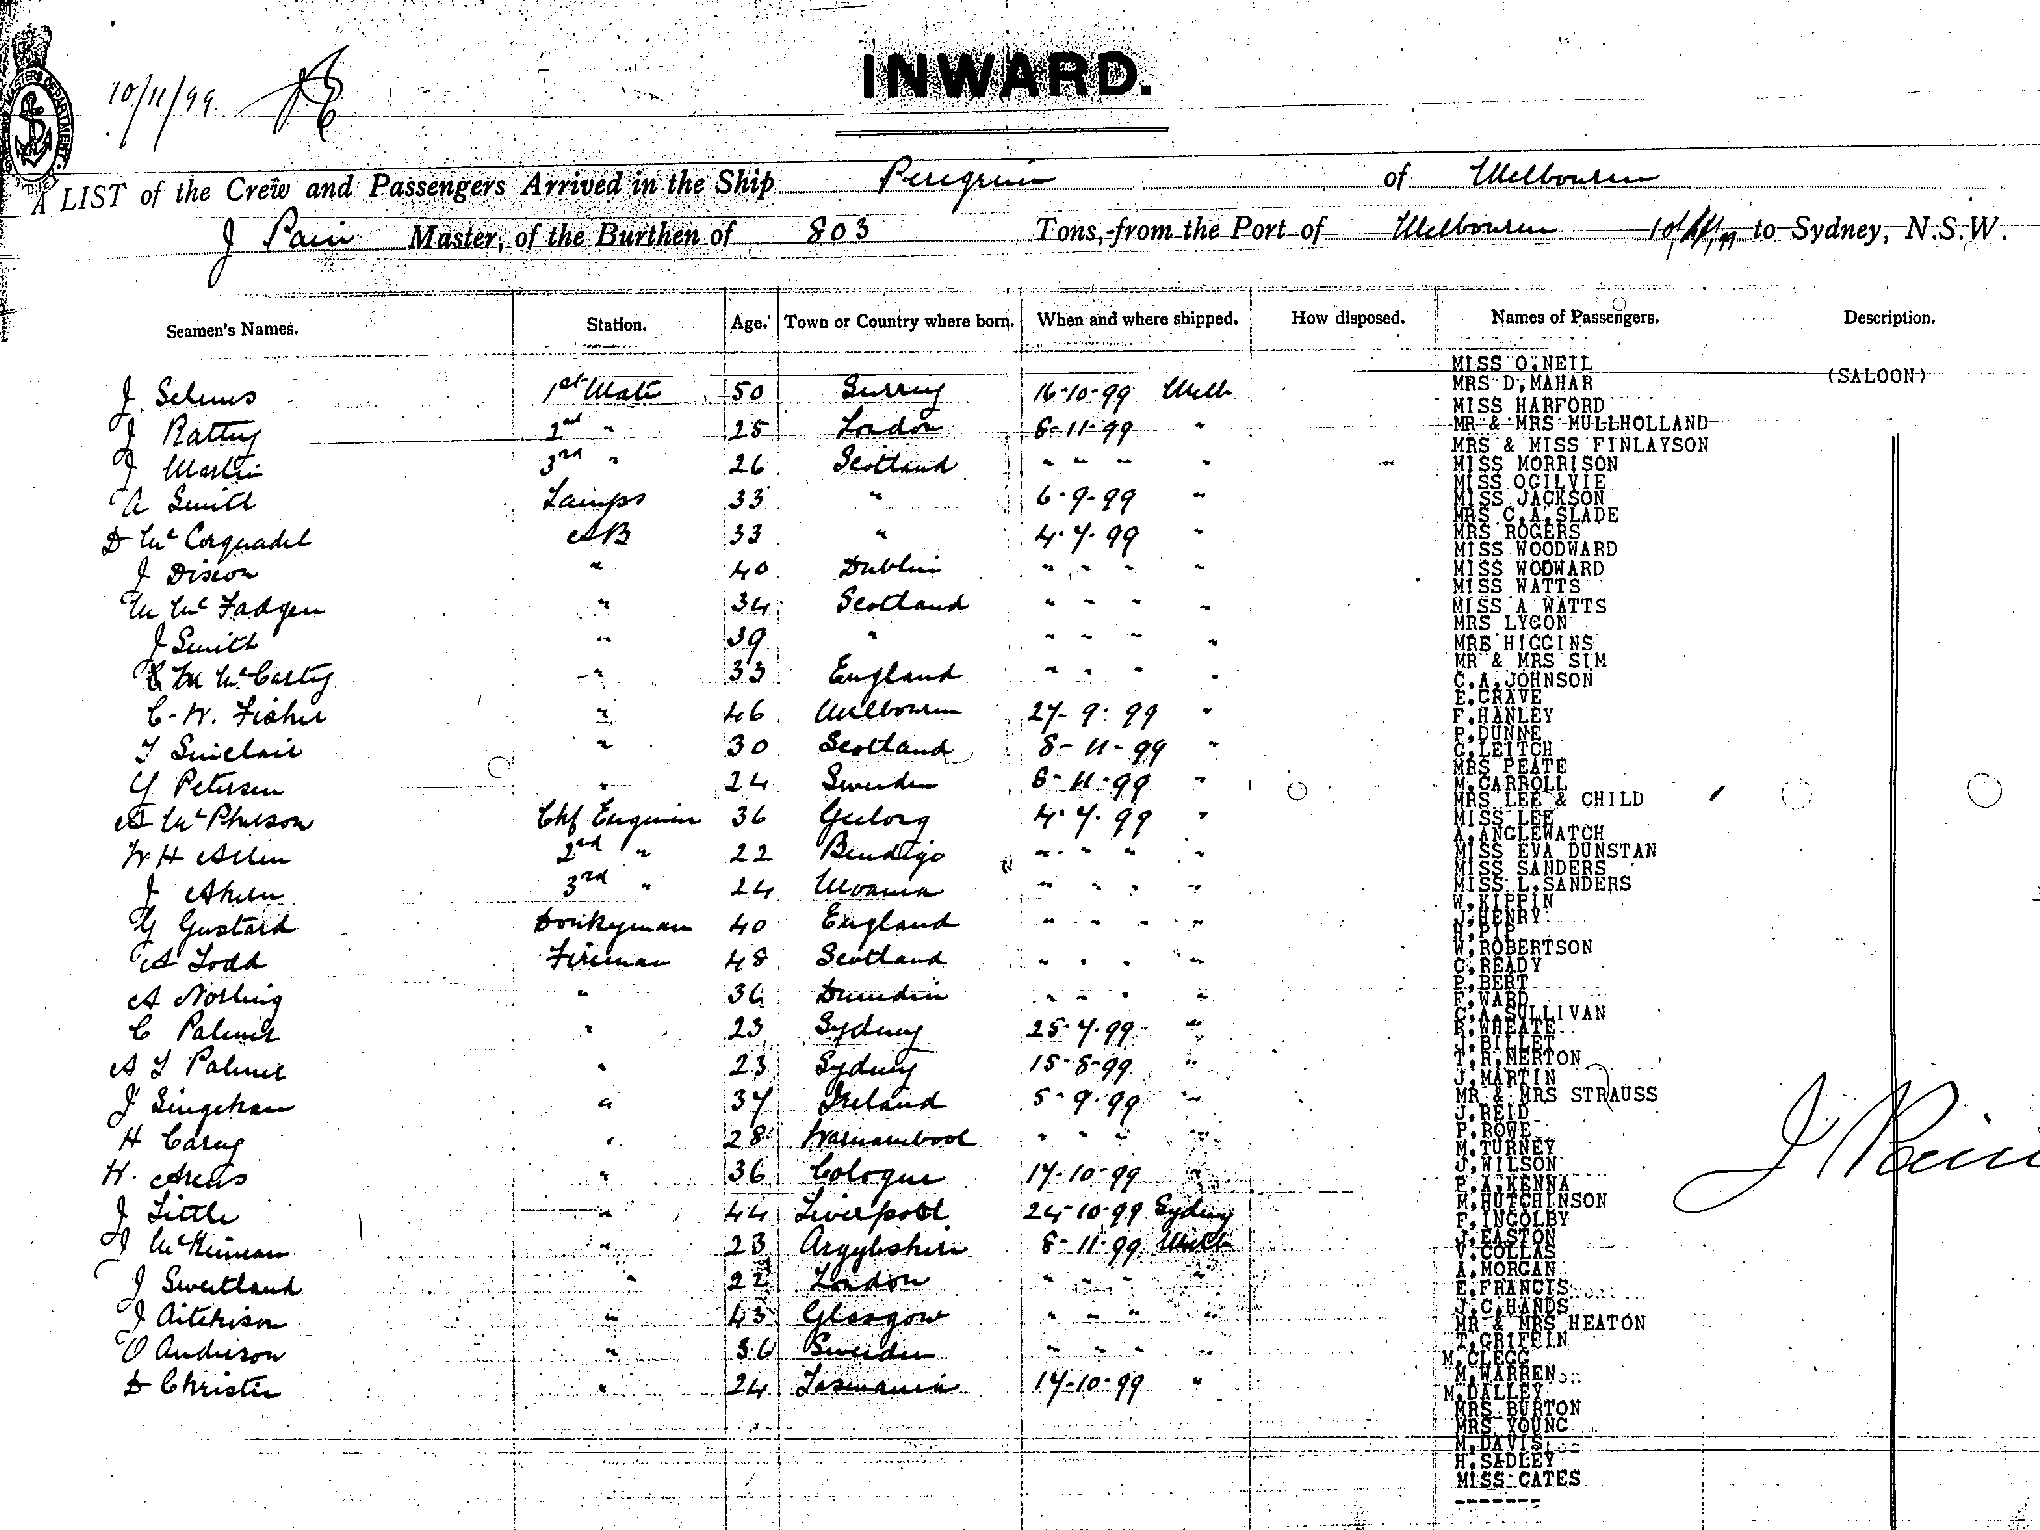 INWARD.
10/11/99.
A LIST of the Crew and Passengers Arrived in the Ship Peregrine of Melbourne
J Pain Master, of the Burthen of 803 Tons, from the Port of Melbourne to Sydney, N.S.W.
Seamen's Names. Station. Age. Town or Country where born. When and where shipped. How disposed. Names of Passengers. Description.
J 1st Mate 50 Surrey 16-10-99 Melb
J Rattey 2nd " 25 London 8-11-99 "
J Martin 3rd " 26 Scotland " " " "
A Smith Lamps 33 " 6-9-99 "
D McCorquadel AB 33 " 4-7-99 "
J Dixon " 40 Dublin " " " "
M McFadgen " 34 Scotland " " " "
J Smith " 39 " " " " "
McCarty " 33 England " " " "
C. W. Fisher " 46 Melbourne 27-9-99 "
T Sinclair " 30 Scotland 8-11-99 "
Y Petersen " 24 Sweden 8-11-99 "
A McPherson Chf Engineer 36 Geelong 4-7-99 "
W H Allen 2nd " 22 Bendigo " " " "
J Aken 3rd " 24 " " " "
G Gustard Donkeyman 40 England " " " "
A Todd Fireman 48 Scotland " " " "
A Norling " 36 Dunedin " " " "
C Palmer " 23 Sydney 25-7-99 "
A T Palmer " 23 Sydney 15-8-99 "
J " 37 Ireland 5-9-99 "
H Carey " 28 Warnambool " " " "
H. Arens " 36 Cologne 17-10-99 "
J Little " 44 Liverpool 24-10-99 Sydney
J McKinnan " 23 Argyleshire 8-11-99 Melb
J Sweetland " 22 London " " " "
J Aitchison " 43 Glasgow " " " "
O Anderson " 36 Sweden " " " "
D Christie " 24 Tasmania 17-10-99 "
MISS O.NEIL
(SALOON)
MRS D.MAHAR
MISS HARFORD
MR & MRS MULLHOLLAND
MRS & MISS FINLAYSON
MISS MORRISON
MISS OGILVIE
MISS JACKSON
MRS C.A.SLADE
MRS ROGERS
MISS WOODWARD
MISS WODWARD
MISS WATTS
MISS A WATTS
MRS LYGON
MRS HIGGINS
MR & MRS SIM
C.A.JOHNSON
E.GRAVE
F.HANLEY
P.DUNNE
G.LEITCH
MRS PEATE
M.CARROLL
MRS LEE & CHILD
MISS LEE
A.ANGLEWATCH
MISS EVA DUNSTAN
MISS SANDERS
MISS L.SANDERS
W.KIPPIN
J.HENRY
H.PIP
W.ROBERTSON
C.READY
P.BERT
F.WARD
C.A.SULLIVAN
R.WHEATE
J.BILLET
T.R.MERTON
J.MARTIN
MR & MRS STRAUSS
J.REID
P.ROWE
M.TURNEY
J.WILSON
P.A.KENNA
M.HUTCHINSON
F.INGOLBY
J.EASTON
V.COLLAS
A.MORGAN
E.FRANCIS
J.C.HANDS
MR & MRS HEATON
T.GRIFFIN
M.CLEGG
M.WARREN
M.DALLEY
MRS BURTON
MRS YOUNG
M.DAVIS
H.SADLEY
MISS CATES
-------
J Pain